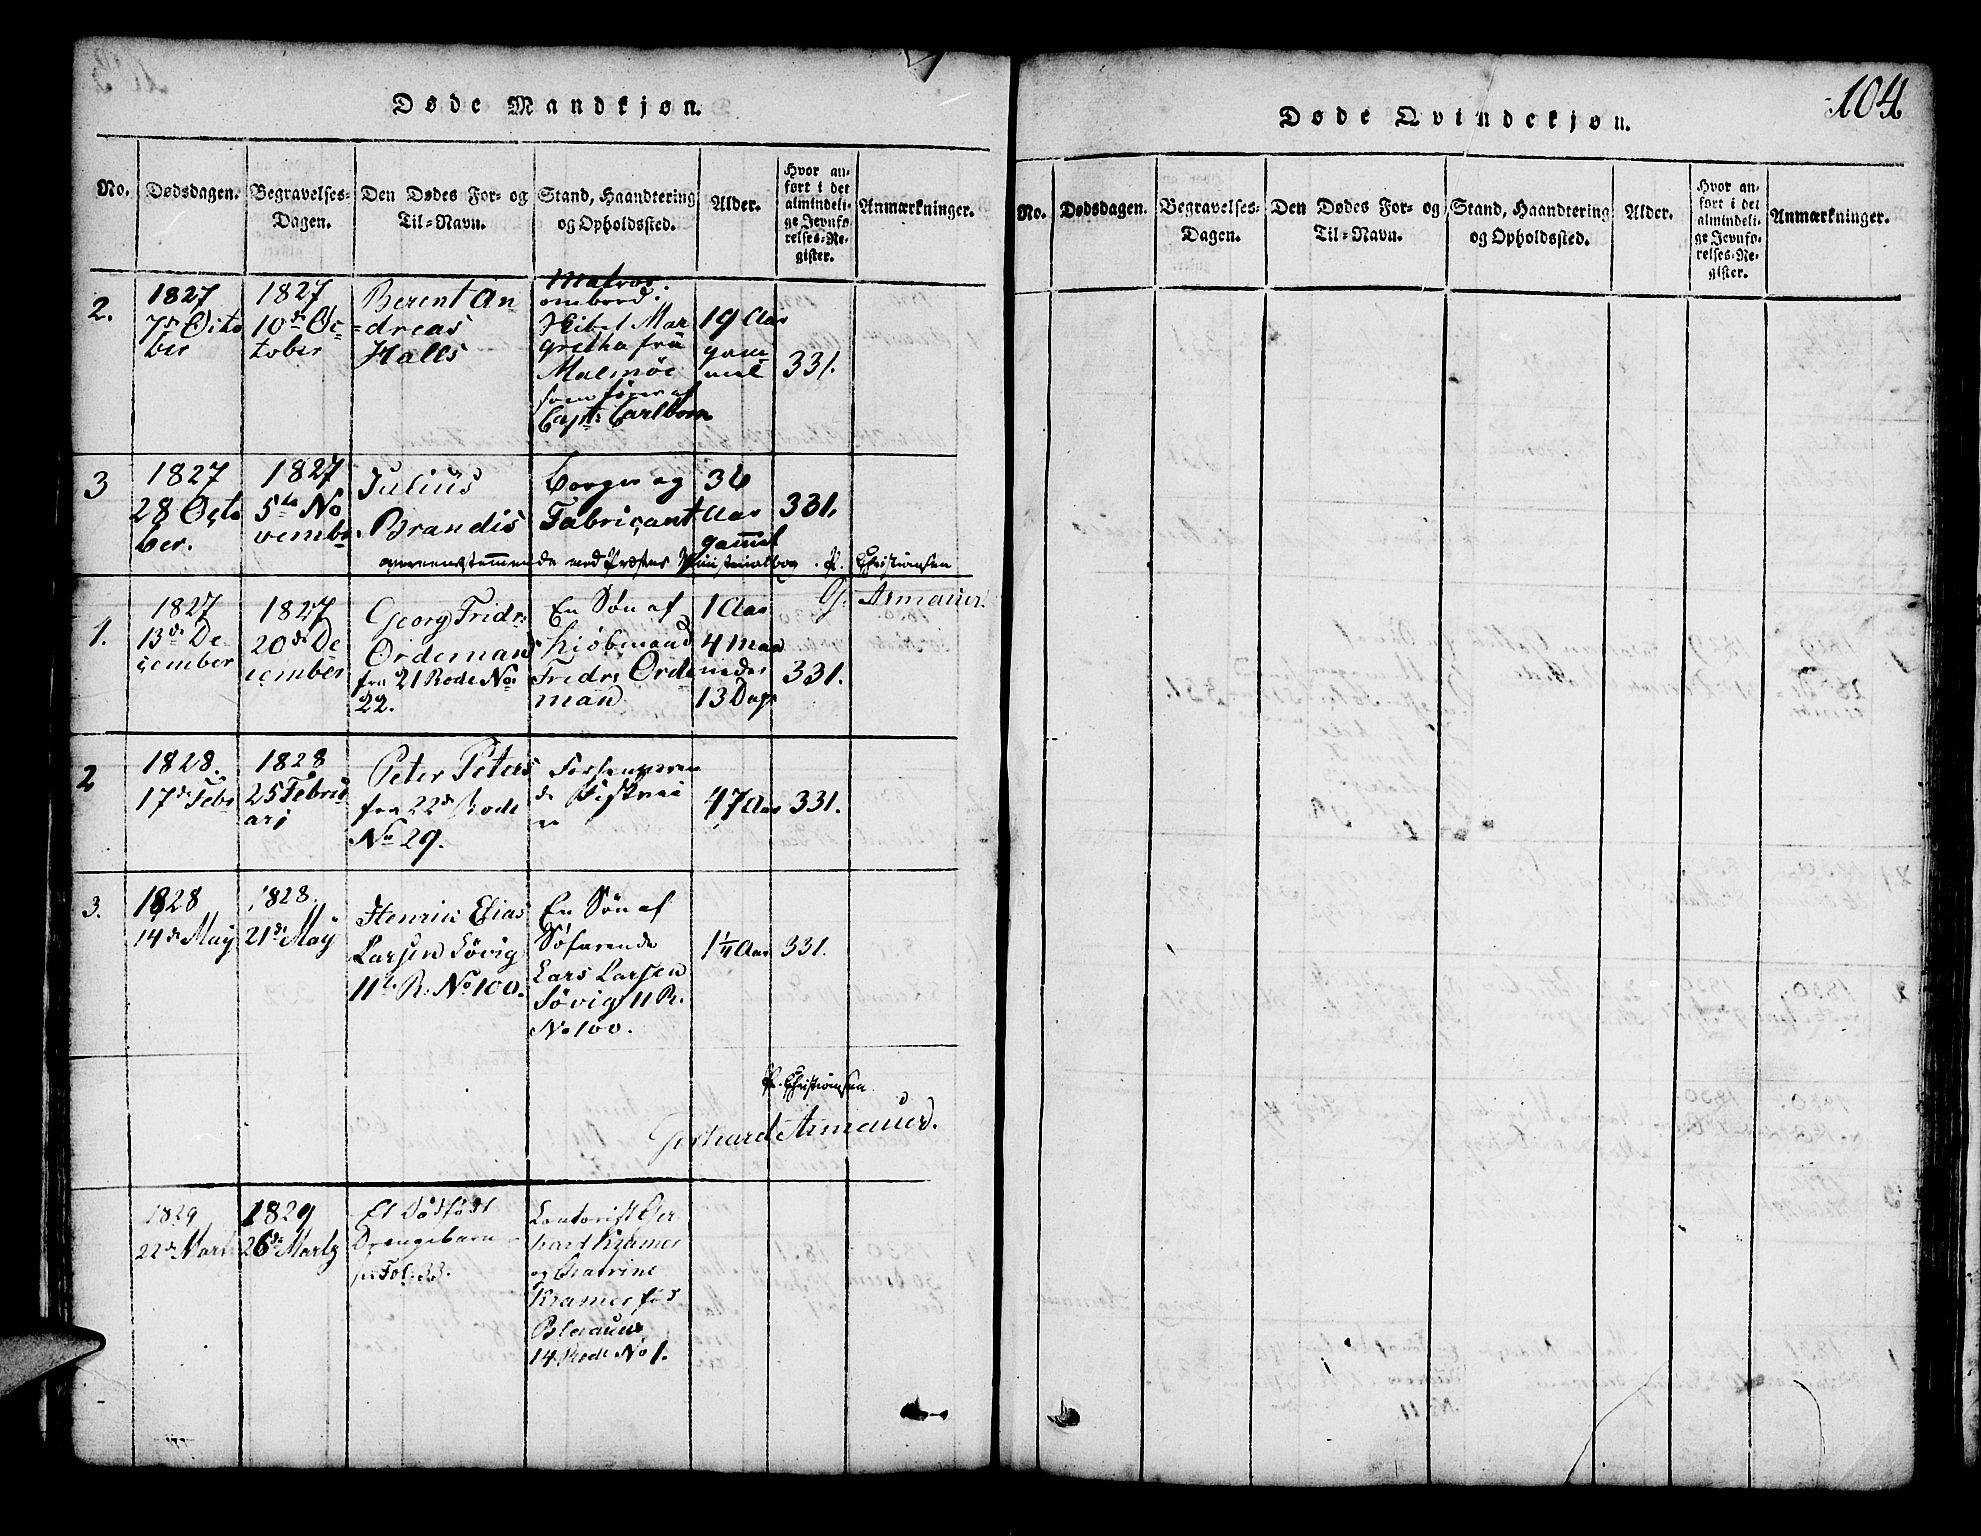 Døde Mandkjøn.
No.
Dødsdagen.
Begravelses-
Dagen.
Den Dødes For- og
Til-Navn.
Stand, Haandtering
og Opholdssted.
Alder.
Hvor an-
ført i det
almindeli-
ge Jevnfø-
relses-Re-
gister.
Anmærkninger.
2.
1827
7de Octo
ber
1827
10de Oc-
tober
Berent An
dreas
Halls
Matros
ombord
Skibet Mar
gretha fra
Malmöe
som föres af
Capt: Carlbom
19 Aar
gam
mel
331.
3
1827
28 Octo
ber.
1827
5te No
vembr
Julius
Brandis
Borger og
Fabricant
36
Aar
gamel
331.
overeenstemmende med Præstens Ministerialbog. P. Christiansen
G. Armauer.
1.
1827
13de De
cember
1827
20de De
cember
Georg Fridr:
Ordeman
fra 21 Rode No
22.
En Søn af
Kjöbmand
Fridr: Orde
man
1 Aar
4 Maa
neder
13 Dage
331.
2
1828.
17de Febr
1828
25 Februi
arj
Peter Peters
fra 22de Rode
No 29.
47 Aar
331.
3.
1828
14de Maij
1828.
21de Maij
Henrich Elias
Larsen Lövig
11te R. No 100.
En Søn af
Søfarende
Lars Larsen
Lövig 11 R.
No 100.
1 1/4 Aar
331.
P. Christiansen
Gerhard Armauer.
1829
22de Marts
1829
26de Martz
Et Dödfödt
Drengebarn
Fol: 33.
Contorist Ger
hard Kramer
og Catrine
Kramer föd
14 Rode No 1.
104
Døde Qvindekjøn.
No.
Dødsdagen.
Begravelses-
Dagen.
Den Dødes For- og
Til-Navn.
Stand, Haandtering
og Opholdssted.
Alder.
Hvor an-
ført i det
almindeli-
ge Jevnfø-
relses-Re-
gister.
Anmærkninger.